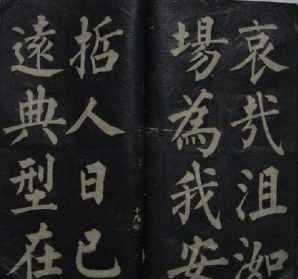 哀哉沮洳
場為我安
哲人日已
遠典型在